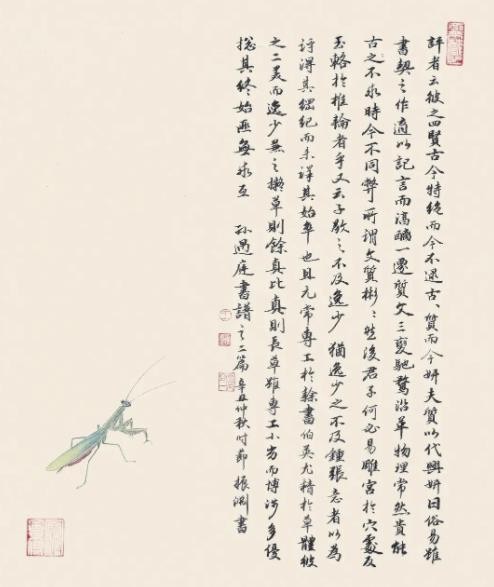 評者云彼之四賢古今特絕而今不逮古、質而今妍夫質以代興妍因俗易雖
書契之作適以記言而淳醨一遷質文三變馳騖沿革物理常然貴能
古之不乖時今不同弊所謂文質彬〻然後君子何必易雕宮於穴處反
玉輅於椎輪者乎又云子敬之不及逸少猶逸少之不及鍾張意者以為
評得其綱紀而未詳其始卒也且元常專工於隸書伯英尤精於草體彼
之二美而逸少兼之擬草則餘真比真則長草雖專工小劣而博涉多優
摠其終始匪無乖互 孫過庭書譜之二篇 辛丑仲秋時節 振淵書